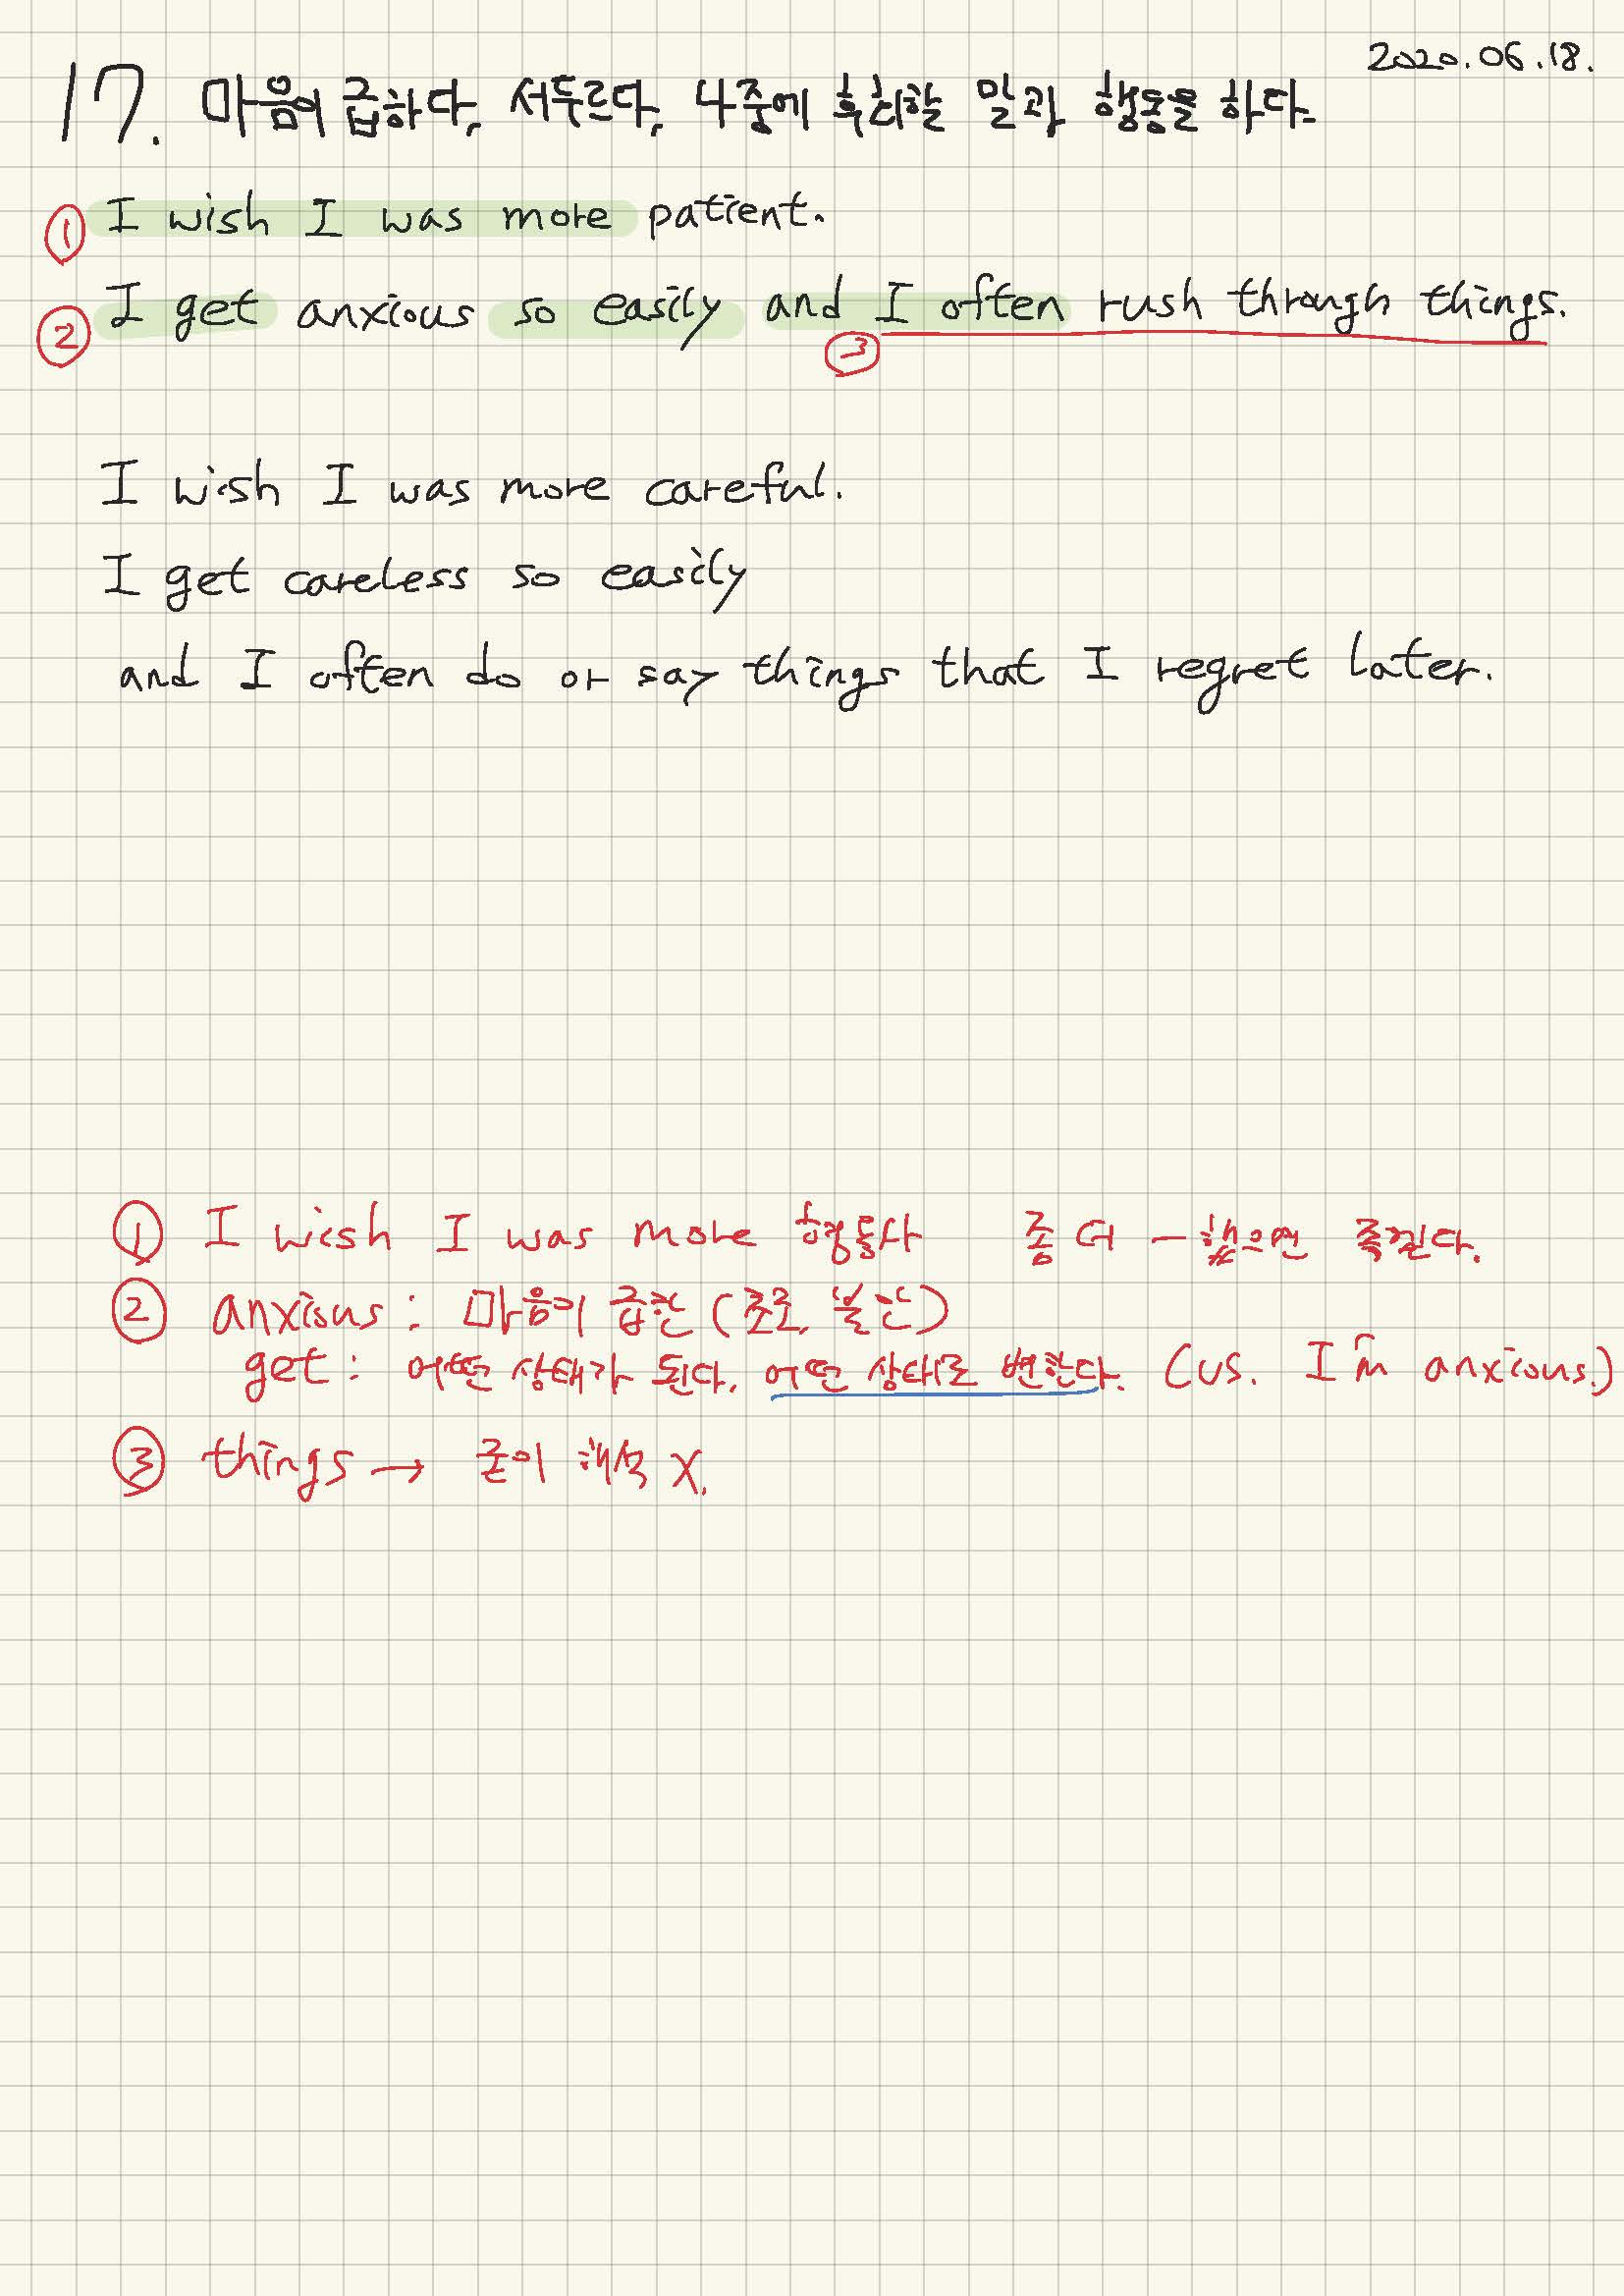 2020.06.18.
17. 마음이 급하다, 서두르다, 나중에 후회할 말과 행동을 하다.
① I wish I was more patient.
② I get anxious so easily and ③ I often rush through things.
I wish I was more careful.
I get careless so easily
and I often do or say things that I regret later.
① I wish I was more 형용사 좀 더 -했으면 좋겠다.
② anxious: 마음이 급한 (초조, 불안)
get: 어떤 상태가 된다. 어떤 상태로 변한다. (vs. I'm anxious.)
③ things → 굳이 해석 X.